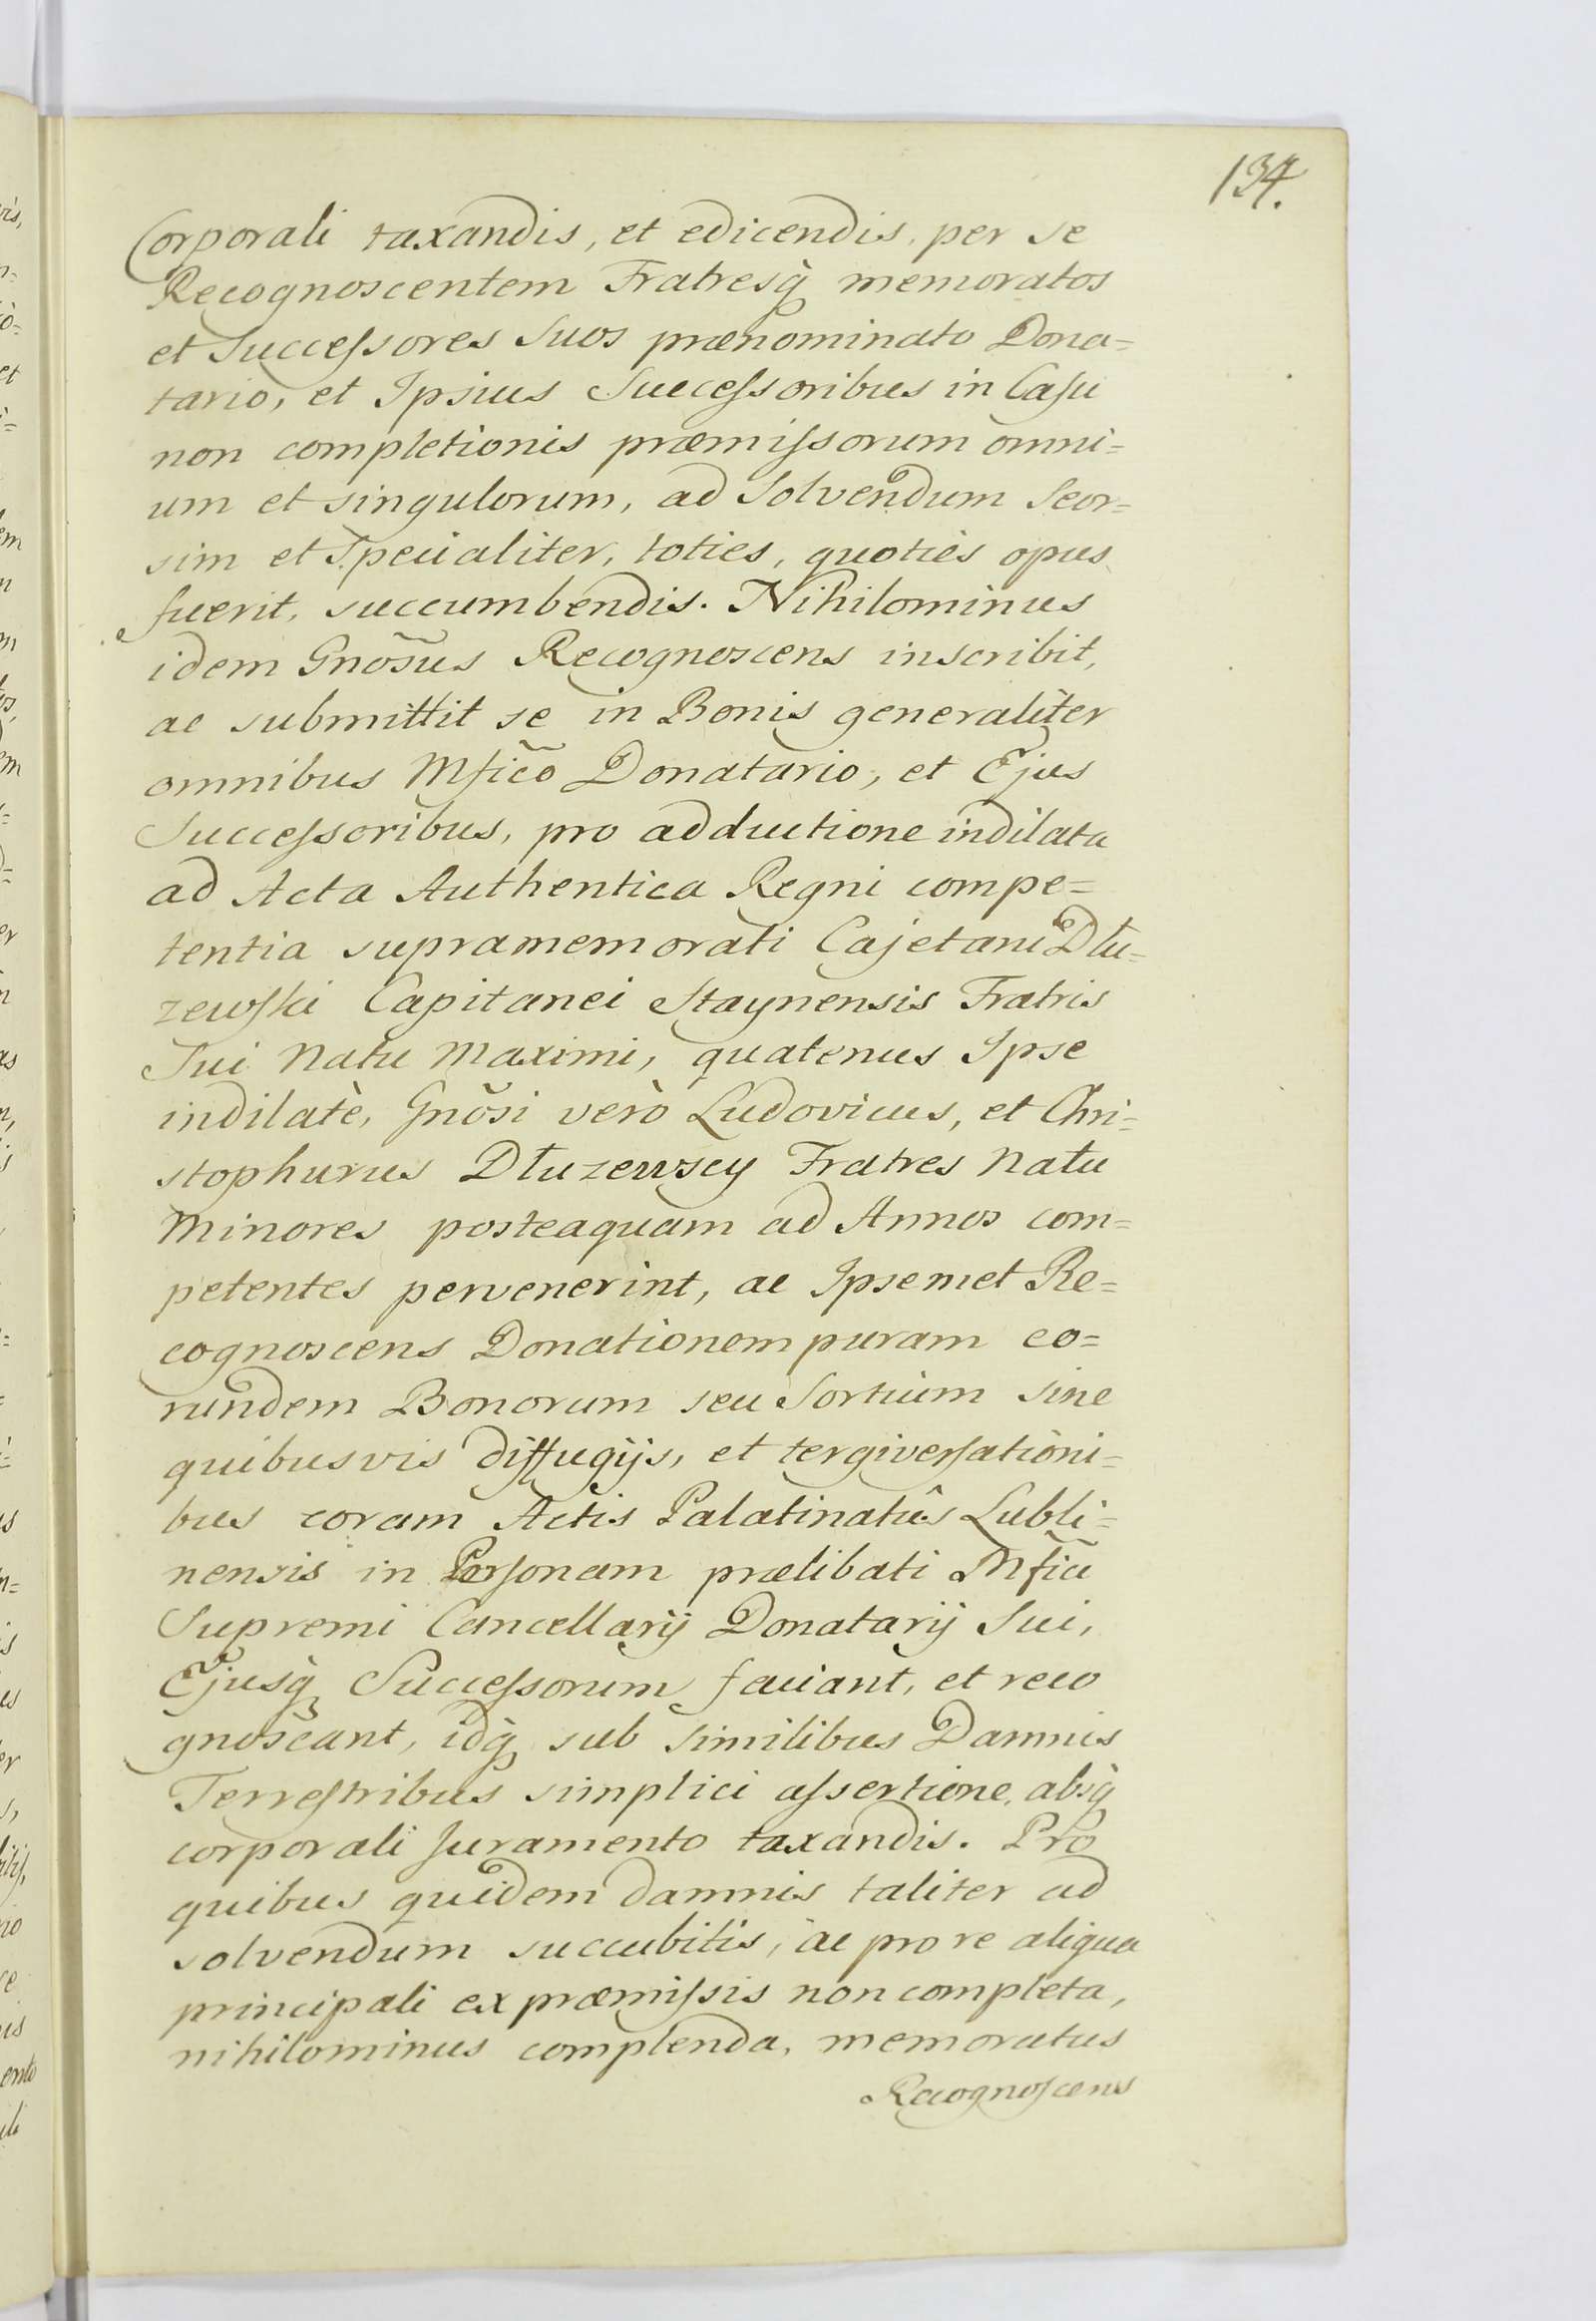 134.
Corporali taxandis, et edicendis, per se
Recognoscentem Fratresq̀ memoratos
et Successores Suos prænominato Dona=
tario, et Ipsius Successoribus in Casu
non completionis præmissorum omni=
um et singulorum, ad Solvendum Seor=
sim et Specialiter, toties, quoties opus
fuerit, succumbendis. Nihilominus
idem Gnõsus Recognoscens inscribit,
ac submittit se in Bonis generaliter
omnibus Mficõ Donatario, et Ejus
Successoribus, pro adductione indilata
ad Acta Authentica Regni compe=
tentia supramemorati Cajetani Dłu=
zewski Capitanei Staynensis Fratris
Sui Natu Maximi, quatenus Ipse
indilatè, Gnõsi verò Ludovicus, et Chri=
stophurus Dłuzewscy Fratres Natu
Minores posteaquam ad Annos com=
petentes pervenerint, ac Ipsemet Re=
cognoscens Donationem puram eo=
rundem Bonorum seu Sortium sine
quibusvis diffugijs, et tergiversationi=
bus coram Actis Palatinatûs Lubli=
nensis in Personam prælibati Mficĩ
Supremi Cancellarij Donatarij Sui,
Ejusq̀ Successorum faciant, et reco
gnoscant, idq̀ sub similibus Damnis
Terrestribus simplici assertione, absq̀
corporali Juramento taxandis. Pro
quibus quidem damnis taliter ad
solvendum succubitis, ac pro re aliqua
principali ex præmissis non completa,
nihilominus complenda, memoratus
Recognoscens